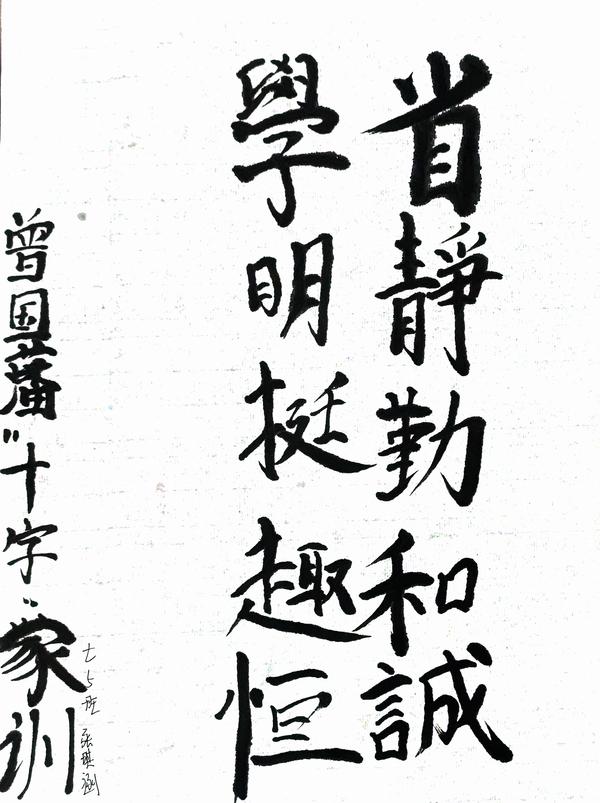 省靜勤和誠
學明挺趣恒
曾国藩"十字"家训
七5班 张琪